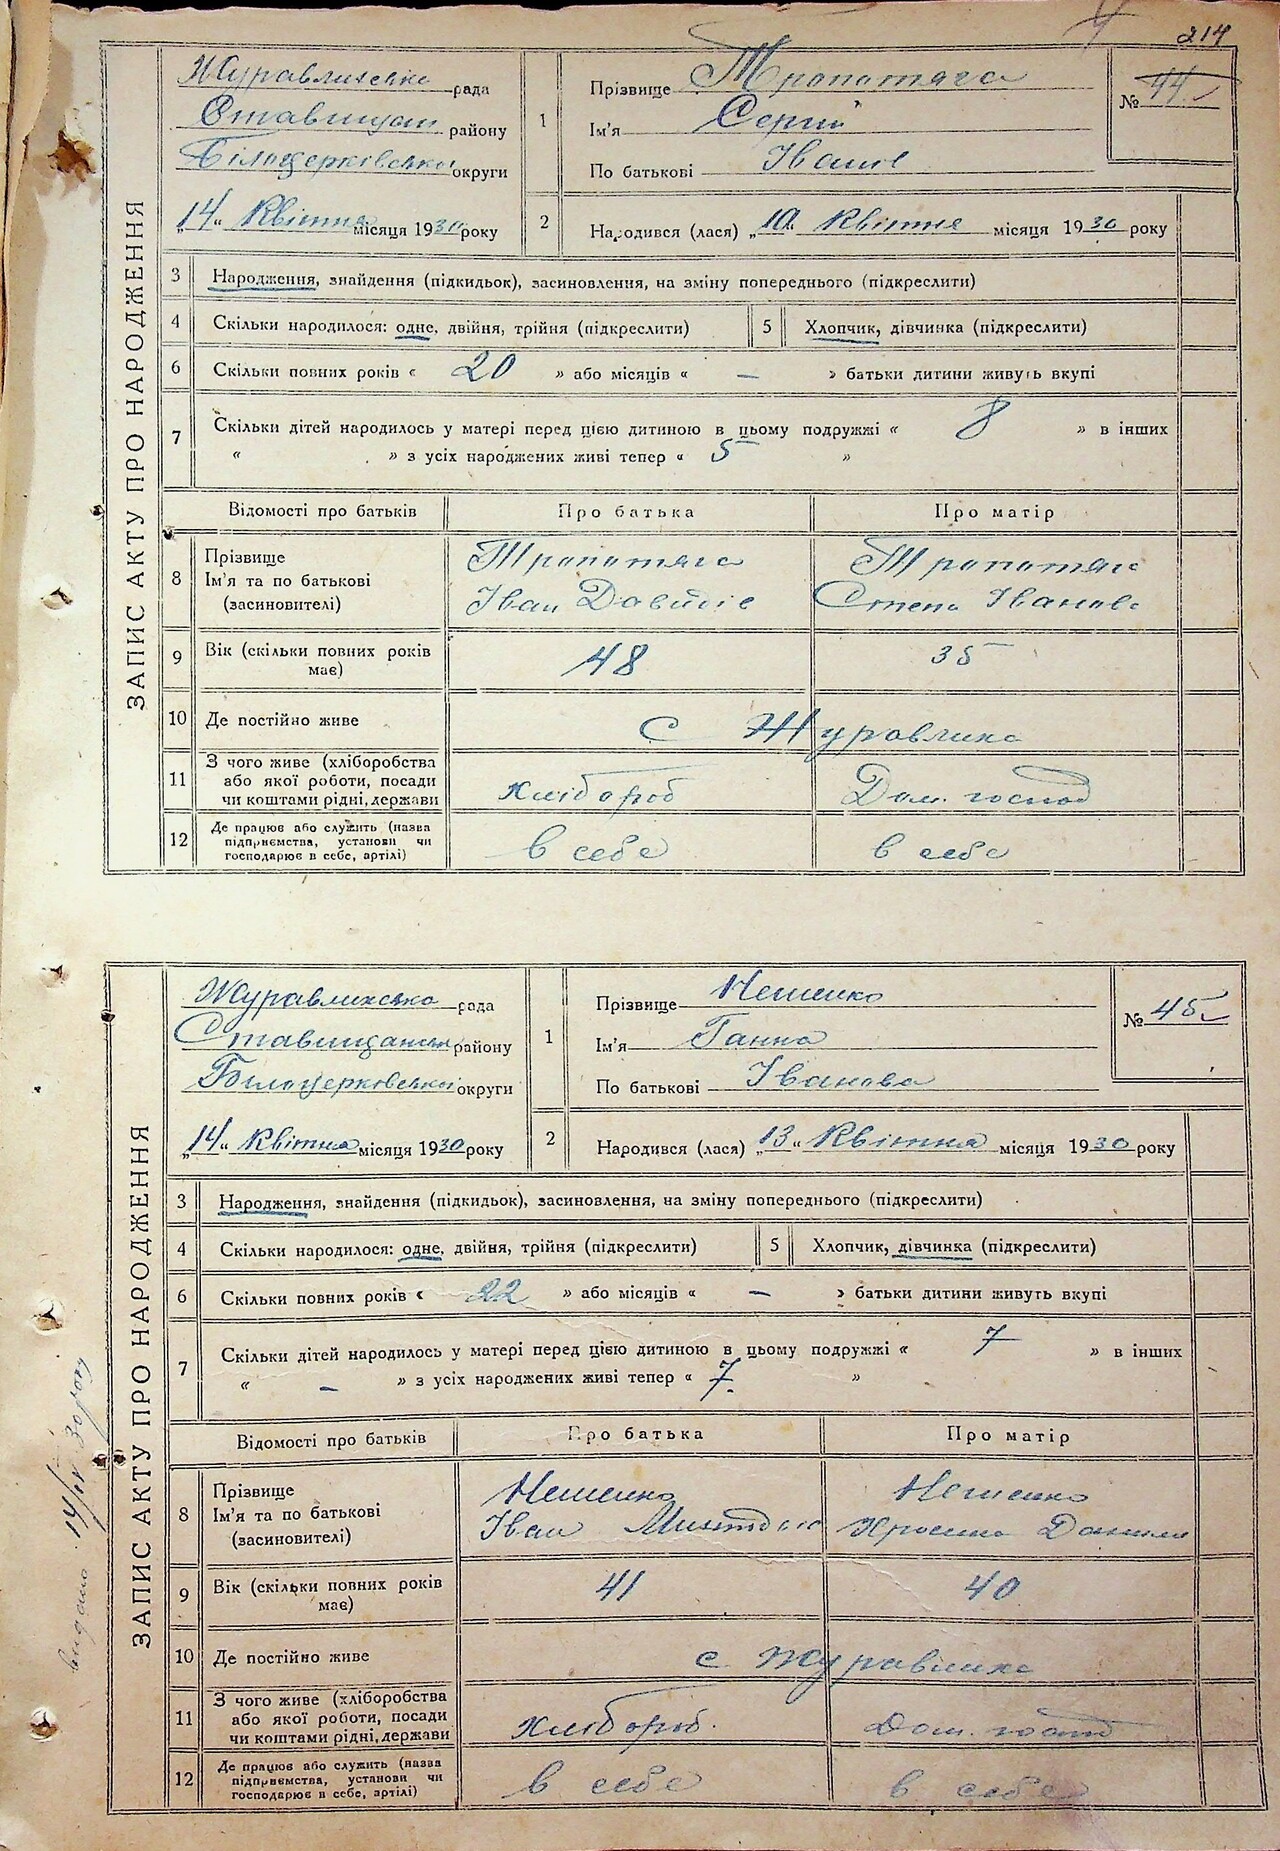 214
ЗАПИС АКТУ ПРО НАРОДЖЕННЯ
Журавлихська рада
Ставищан району
Білоцерківської округи
„14“ Квітня місяця 1930 року
1
Прізвище Тропотяга
Ім'я Сергій
По батькові Іванов
№ 44
2
Народився (лася) „10“ Квітня місяця 1930 року
3 Народження, знайдення (підкидьок), засиновлення, на зміну попереднього (підкреслити)
4 Скільки народилося: одне, двійня, трійня (підкреслити) 5 Хлопчик, дівчинка (підкреслити)
6 Скільки повних років « 20 » або місяців « – » батьки дитини живуть вкупі
7 Скільки дітей народилось у матері перед цією дитиною в цьому подружжі « 8 » в інших
« » з усіх народжених живі тепер « 5 »
Відомості про батьків Про батька Про матір
8 Прізвище Тропотяга Тропотяга
Ім'я та по батькові Іван Давидів Степа Іванова
(засиновителі)
9 Вік (скільки повних років має) 48 35
10 Де постійно живе с Журавлиха
11 З чого живе (хліборобства
або якої роботи, посади
чи коштами рідні, держави хлібороб Дом. господ
12 Де працює або служить (назва
підприємства, установи чи
господарює в себе, артілі) в себе в себе
ЗАПИС АКТУ ПРО НАРОДЖЕННЯ
Журавлихська рада
Ставищанськ району
Білоцерківської округи
„14“ Квітня місяця 1930 року
1
Прізвище Нешенко
Ім'я Ганна
По батькові Іванова
№ 45
2
Народився (лася) „13“ Квітня місяця 1930 року
3 Народження, знайдення (підкидьок), засиновлення, на зміну попереднього (підкреслити)
4 Скільки народилося: одне, двійня, трійня (підкреслити) 5 Хлопчик, дівчинка (підкреслити)
6 Скільки повних років « 22 » або місяців « – » батьки дитини живуть вкупі
7 Скільки дітей народилось у матері перед цією дитиною в цьому подружжі « 7 » в інших
« – » з усіх народжених живі тепер « 7 »
Відомості про батьків Про батька Про матір
8 Прізвище Нешенко Нешенко
Ім'я та по батькові Іван Данили
(засиновителі)
9 Вік (скільки повних років має) 41 40
10 Де постійно живе с Журавлиха
11 З чого живе (хліборобства
або якої роботи, посади
чи коштами рідні, держави хлібороб. Дом. госпд
12 Де працює або служить (назва
підприємства, установи чи
господарює в себе, артілі) в себе в себе
видано 14/IV 30 року